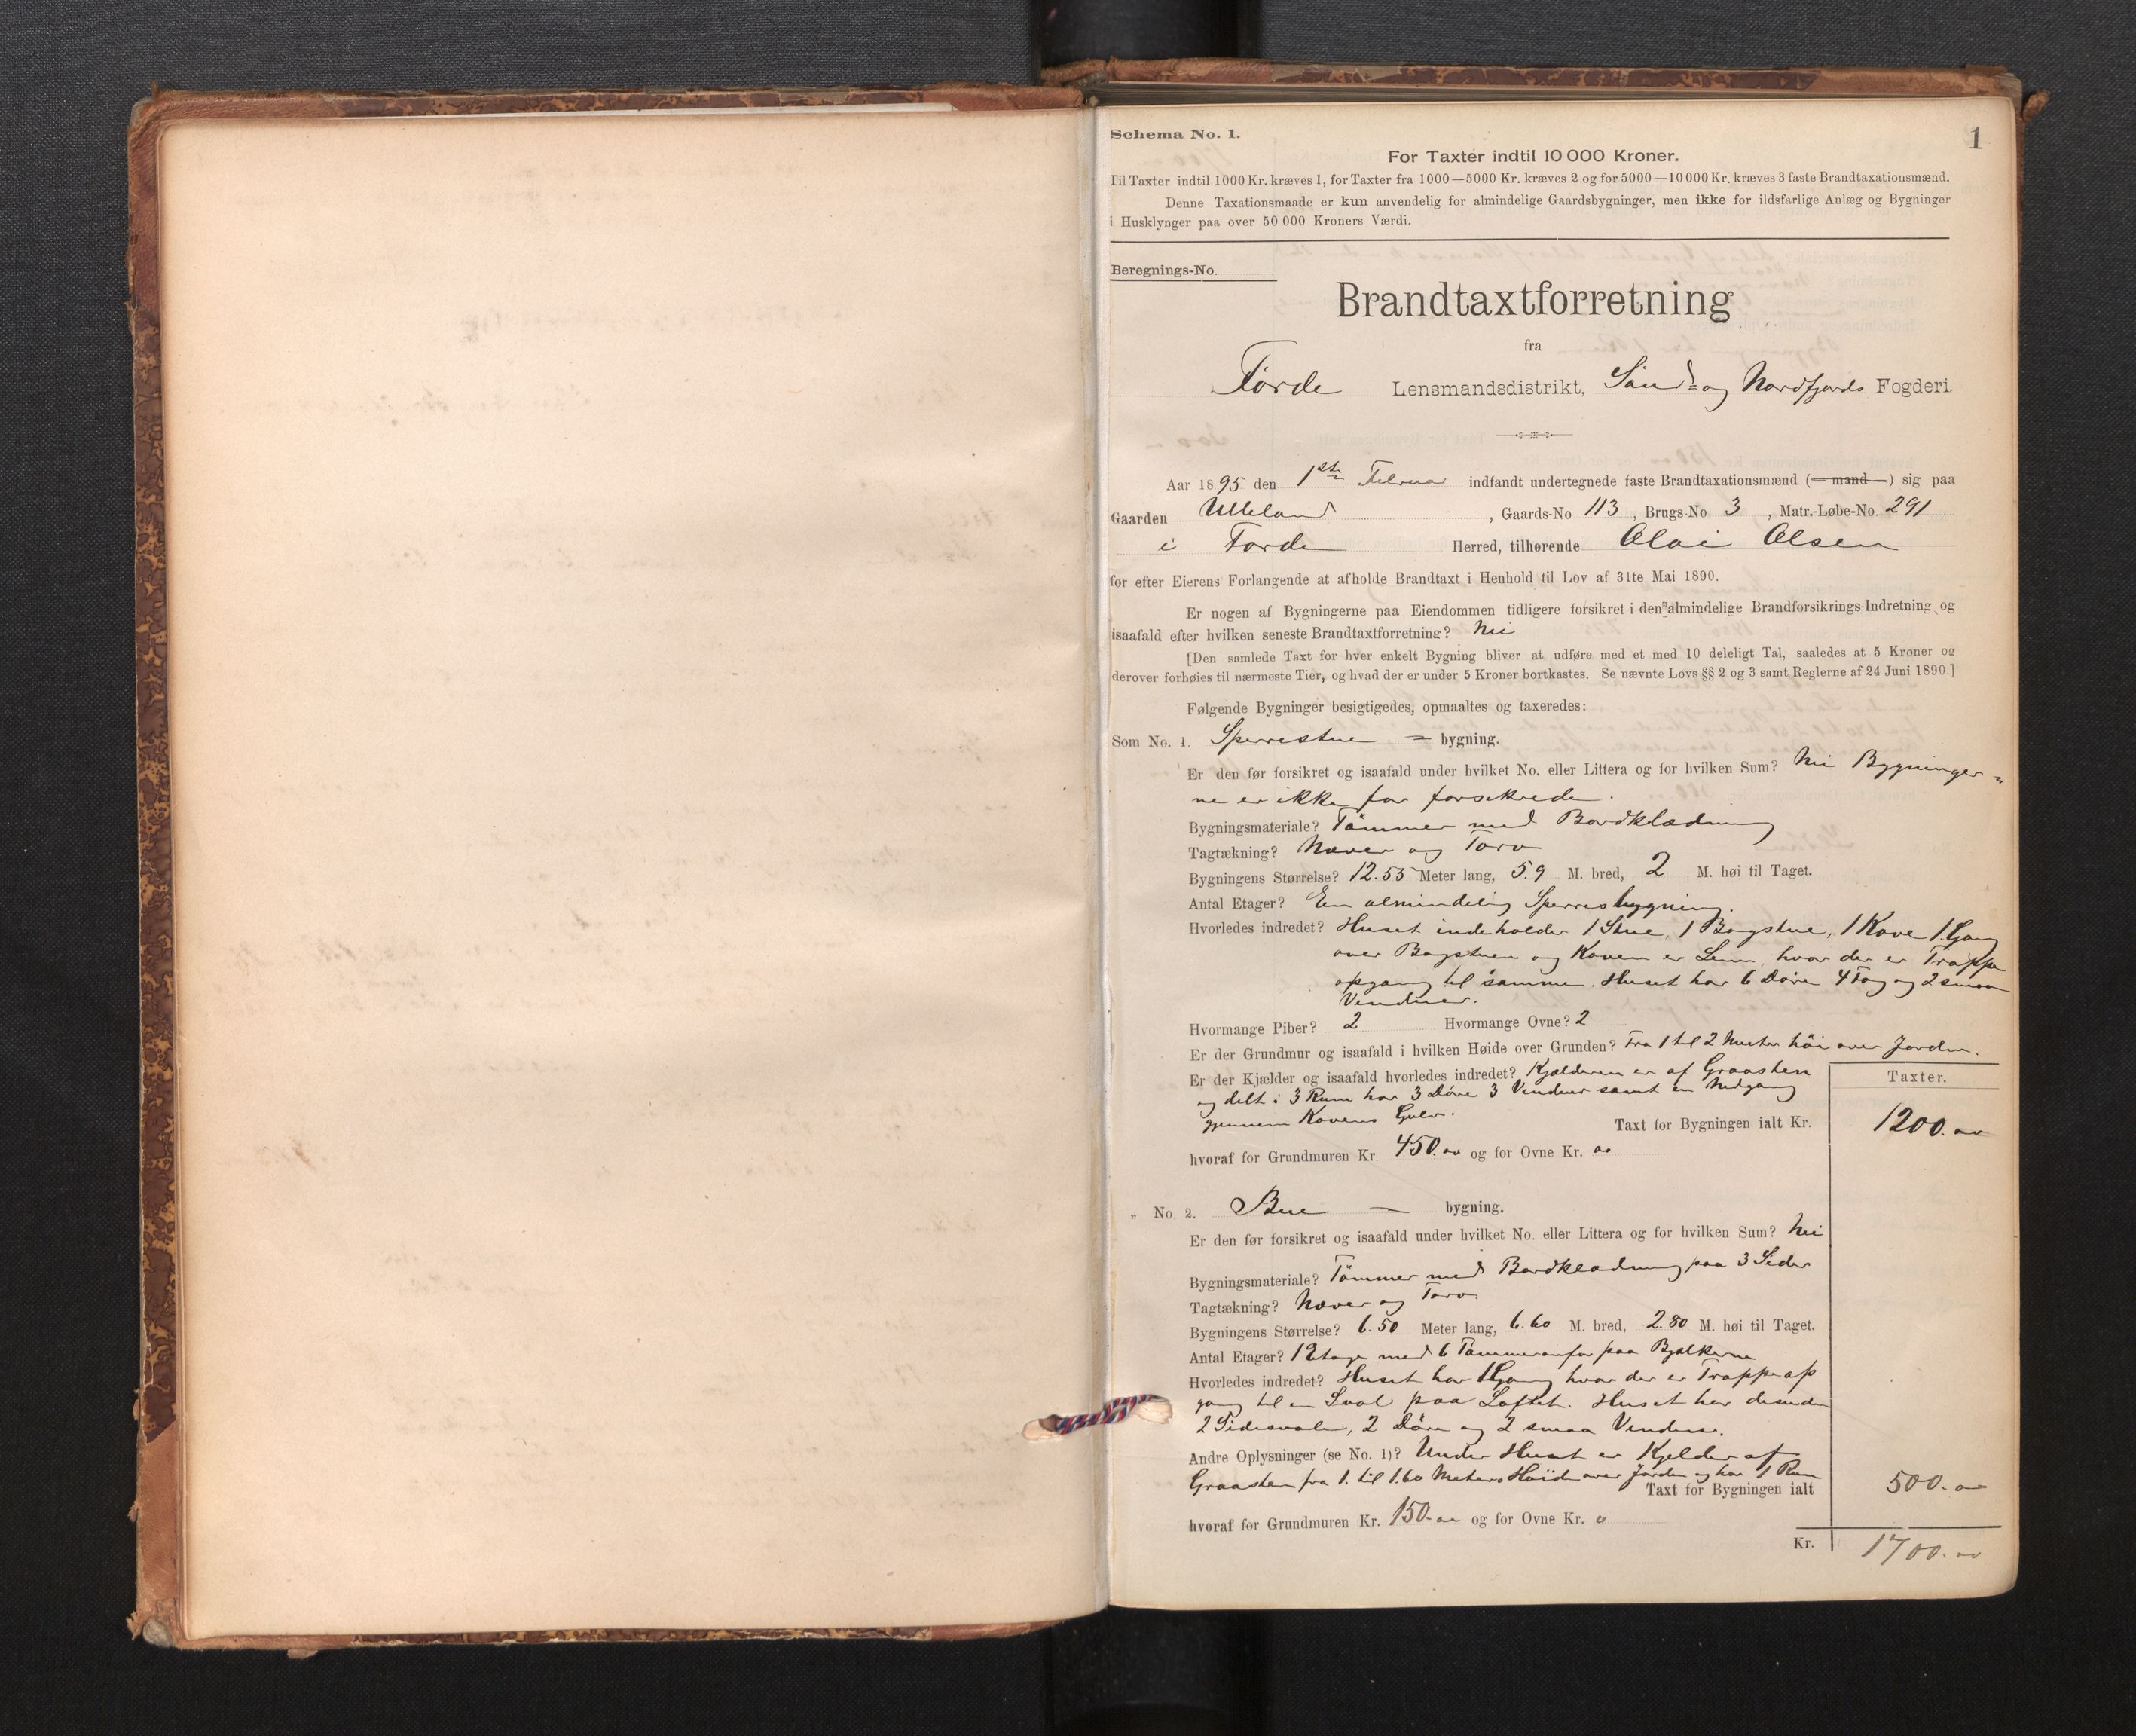 Schema No. 1.
1
For Taxter indtil 10 000 Kroner.
Til Taxter indtil 1000 Kr. kræves 1, for Taxter fra 1000—5000 Kr. kræves 2 og for 5000—10 000 Kr. kræves 3 faste Brandtaxationsmænd.
Denne Taxationsmaade er kun anvendelig for almindelige Gaardsbygninger, men ikke for ildsfarlige Anlæg og Bygninger
i Husklynger paa over 50 000 Kroners Værdi.
Beregnings-No.
Brandtaxtforretning
fra
Förde Lensmandsdistrikt, Sönd- og Nordfjords Fogderi.
Aar 1895 den 1ste Februar indfandt undertegnede faste Brandtaxationsmænd (— mand —) sig paa
Gaarden Ulleland, Gaards-No 113, Brugs-No 3, Matr.-Løbe-No. 291
i Förde Herred, tilhørende Olai Olsen
for efter Eierens Forlangende at afholde Brandtaxt i Henhold til Lov af 31te Mai 1890.
Er nogen af Bygningerne paa Eiendommen tidligere forsikret i den almindelige Brandforsikrings-Indretning og
isaafald efter hvilken seneste Brandtaxtforretning? Nei
[Den samlede Taxt for hver enkelt Bygning bliver at udføre med et med 10 deleligt Tal, saaledes at 5 Kroner og
derover forhøies til nærmeste Tier, og hvad der er under 5 Kroner bortkastes. Se nævnte Lovs §§ 2 og 3 samt Reglerne af 24 Juni 1890.]
Følgende Bygninger besigtigedes, opmaaltes og taxeredes:
Som No. 1. Sperrestue = bygning.
Er den før forsikret og isaafald under hvilket No. eller Littera og for hvilken Sum? Nei Bygninger=
ne er ikke før forsikrede.
Bygningsmateriale? Tömmer med Bordklædning
Tagtækning? Næver og Torv
Bygningens Størrelse? 12.55 Meter lang, 5.9 M. bred, 2 M. høi til Taget.
Antal Etager? En almindelig Sperresbygning.
Hvorledes indredet? Huset indeholder 1 Stue, 1 Bagstue, 1 Kove 1 Gang
over Bagstuen og Koven er Lem, hvor der er Trappe
opgang til samme. Huset har 6 Döre 4 Fag og 2 smaa
Vinduer.
Hvormange Piber? 2 Hvormange Ovne? 2
Er der Grundmur og isaafald i hvilken Høide over Grunden? Fra 1 til 2 Meter höi over Jorden.
Er der Kjælder og isaafald hvorledes indredet? Kjælderen er af Graasten
og delt i 3 Rum har 3 Döre 3 Vinduer samt en Nedgang
gjennem Kovens Gulv.
Taxter.
Taxt for Bygningen ialt Kr. 1200.
hvoraf for Grundmuren Kr. 450. og for Ovne Kr.
„ No. 2. Bue — bygning.
Er den før forsikret og isaafald under hvilket No. eller Littera og for hvilken Sum? Nei
Bygningsmateriale? Tömmer med Bordklædning paa 3 Sider
Tagtækning? Næver og Torv
Bygningens Størrelse? 6.50 Meter lang, 6.60 M. bred, 2.80 M. høi til Taget.
Antal Etager? 1 Etage med 6 paa Bjelkerne
Hvorledes indredet? Huset har 1 Gang hvor der er Trappeop
gang til en Sval paa Loftet. Huset har desuden
2 Sidesvale, 2 Döre og 2 smaa Vinduer.
Andre Oplysninger (se No. 1)? Under Huset er Kjelder af
Graasten fra 1. til 1.60 Meters Höide over Jorden og har 1 Rum
Taxt for Bygningen ialt 500.
hvoraf for Grundmuren Kr. 150. og for Ovne Kr.
Kr. 1700.